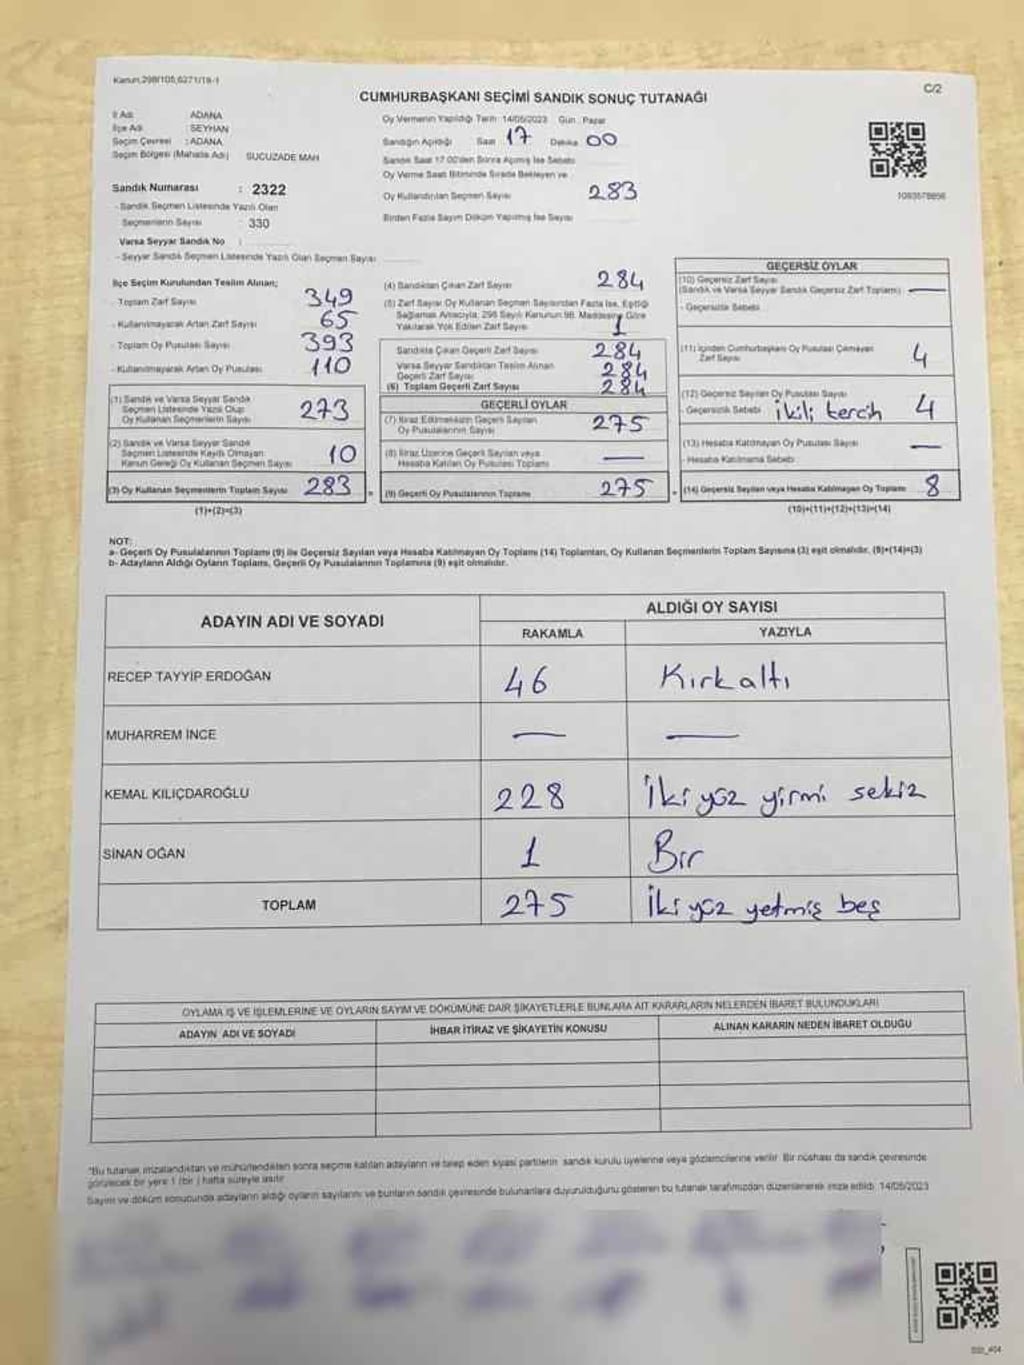 Kanun,298/105,6271/19-1
C/2
CUMHURBAŞKANI SEÇİMİ SANDIK SONUÇ TUTANAĞI
İl Adı : ADANA
İlçe Adı : SEYHAN
Seçim Çevresi : ADANA
Seçim Bölgesi (Mahalle Adı) SUCUZADE MAH
Sandık Numarası : 2322
- Sandık Seçmen Listesinde Yazılı Olan
Seçmenlerin Sayısı : 330
Varsa Seyyar Sandık No :
- Seyyar Sandık Seçmen Listesinde Yazılı Olan Seçmen Sayısı
Oy Vermenin Yapıldığı Tarih: 14/05/2023 Gün : Pazar
Sandığın Açıldığı Saat 17 Dakika 00
Sandık Saat 17.00'den Sonra Açılmış İse Sebebi
Oy Verme Saati Bitiminde Sırada Bekleyen ve
Oy Kullandırılan Seçmen Sayısı 283
Birden Fazla Sayım Döküm Yapılmış İse Sayısı
İlçe Seçim Kurulundan Teslim Alınan;
- Toplam Zarf Sayısı 349
- Kullanılmayarak Artan Zarf Sayısı 65
- Toplam Oy Pusulası Sayısı 393
- Kullanılmayarak Artan Oy Pusulası 110
(1) Sandık ve Varsa Seyyar Sandık
Seçmen Listesinde Yazılı Olup
Oy Kullanan Seçmenlerin Sayısı 273
(2) Sandık ve Varsa Seyyar Sandık
Seçmen Listesinde Kayıtlı Olmayan
Kanun Gereği Oy Kullanan Seçmen Sayısı 10
(3) Oy Kullanan Seçmenlerin Toplam Sayısı 283
(1)+(2)=(3)
(4) Sandıktan Çıkan Zarf Sayısı 284
(5) Zarf Sayısı Oy Kullanan Seçmen Sayısından Fazla İse, Eşitliği
Sağlamak Amacıyla, 298 Sayılı Kanunun 98. Maddesine Göre
Yakılarak Yok Edilen Zarf Sayısı 1
Sandıkta Çıkan Geçerli Zarf Sayısı 284
Varsa Seyyar Sandıktan Teslim Alınan
Geçerli Zarf Sayısı 284
(6) Toplam Geçerli Zarf Sayısı 284
GEÇERLİ OYLAR
(7) İtiraz Edilmeksizin Geçerli Sayılan
Oy Pusulalarının Sayısı 275
(8) İtiraz Üzerine Geçerli Sayılan veya
Hesaba Katılan Oy Pusulası Toplamı —
(9) Geçerli Oy Pusulalarının Toplamı 275
GEÇERSİZ OYLAR
(10) Geçersiz Zarf Sayısı
(Sandık ve Varsa Seyyar Sandık Geçersiz Zarf Toplamı) —
- Geçersizlik Sebebi
(11) İçinden Cumhurbaşkanı Oy Pusulası Çıkmayan
Zarf Sayısı 4
(12) Geçersiz Sayılan Oy Pusulası Sayısı
- Geçersizlik Sebebi ikili tercih 4
(13) Hesaba Katılmayan Oy Pusulası Sayısı —
- Hesaba Katılmama Sebebi
(14) Geçersiz Sayılan veya Hesaba Katılmayan Oy Toplamı 8
(10)+(11)+(12)+(13)=(14)
NOT:
a- Geçerli Oy Pusulalarının Toplamı (9) ile Geçersiz Sayılan veya Hesaba Katılmayan Oy Toplamı (14) Toplamları, Oy Kullanan Seçmenlerin Toplam Sayısına (3) eşit olmalıdır, (9)+(14)=(3)
b- Adayların Aldığı Oyların Toplamı, Geçerli Oy Pusulalarının Toplamına (9) eşit olmalıdır.
ADAYIN ADI VE SOYADI
ALDIĞI OY SAYISI
RAKAMLA YAZIYLA
RECEP TAYYİP ERDOĞAN 46 Kırkaltı
MUHARREM İNCE — —
KEMAL KILIÇDAROĞLU 228 İki yüz yirmi sekiz
SİNAN OĞAN 1 Bir
TOPLAM 275 İki yüz yetmiş beş
OYLAMA İŞ VE İŞLEMLERİNE VE OYLARIN SAYIM VE DÖKÜMÜNE DAİR ŞİKAYETLERLE BUNLARA AİT KARARLARIN NELERDEN İBARET BULUNDUKLARI
ADAYIN ADI VE SOYADI İHBAR İTİRAZ VE ŞİKAYETİN KONUSU ALINAN KARARIN NEDEN İBARET OLDUĞU
*Bu tutanak imzalandıktan ve mühürlendikten sonra seçime katılan adayların ve talep eden siyasi partilerin sandık kurulu üyelerine veya gözlemcilerine verilir. Bir nüshası da sandık çevresinde
görülecek bir yere 1 (bir ) hafta süreyle asılır.
Sayım ve döküm sonucunda adayların aldığı oyların sayılarını ve bunların sandık çevresinde bulunanlara duyurulduğunu gösteren bu tutanak tarafımızdan düzenlenerek imza edildi. 14/05/2023